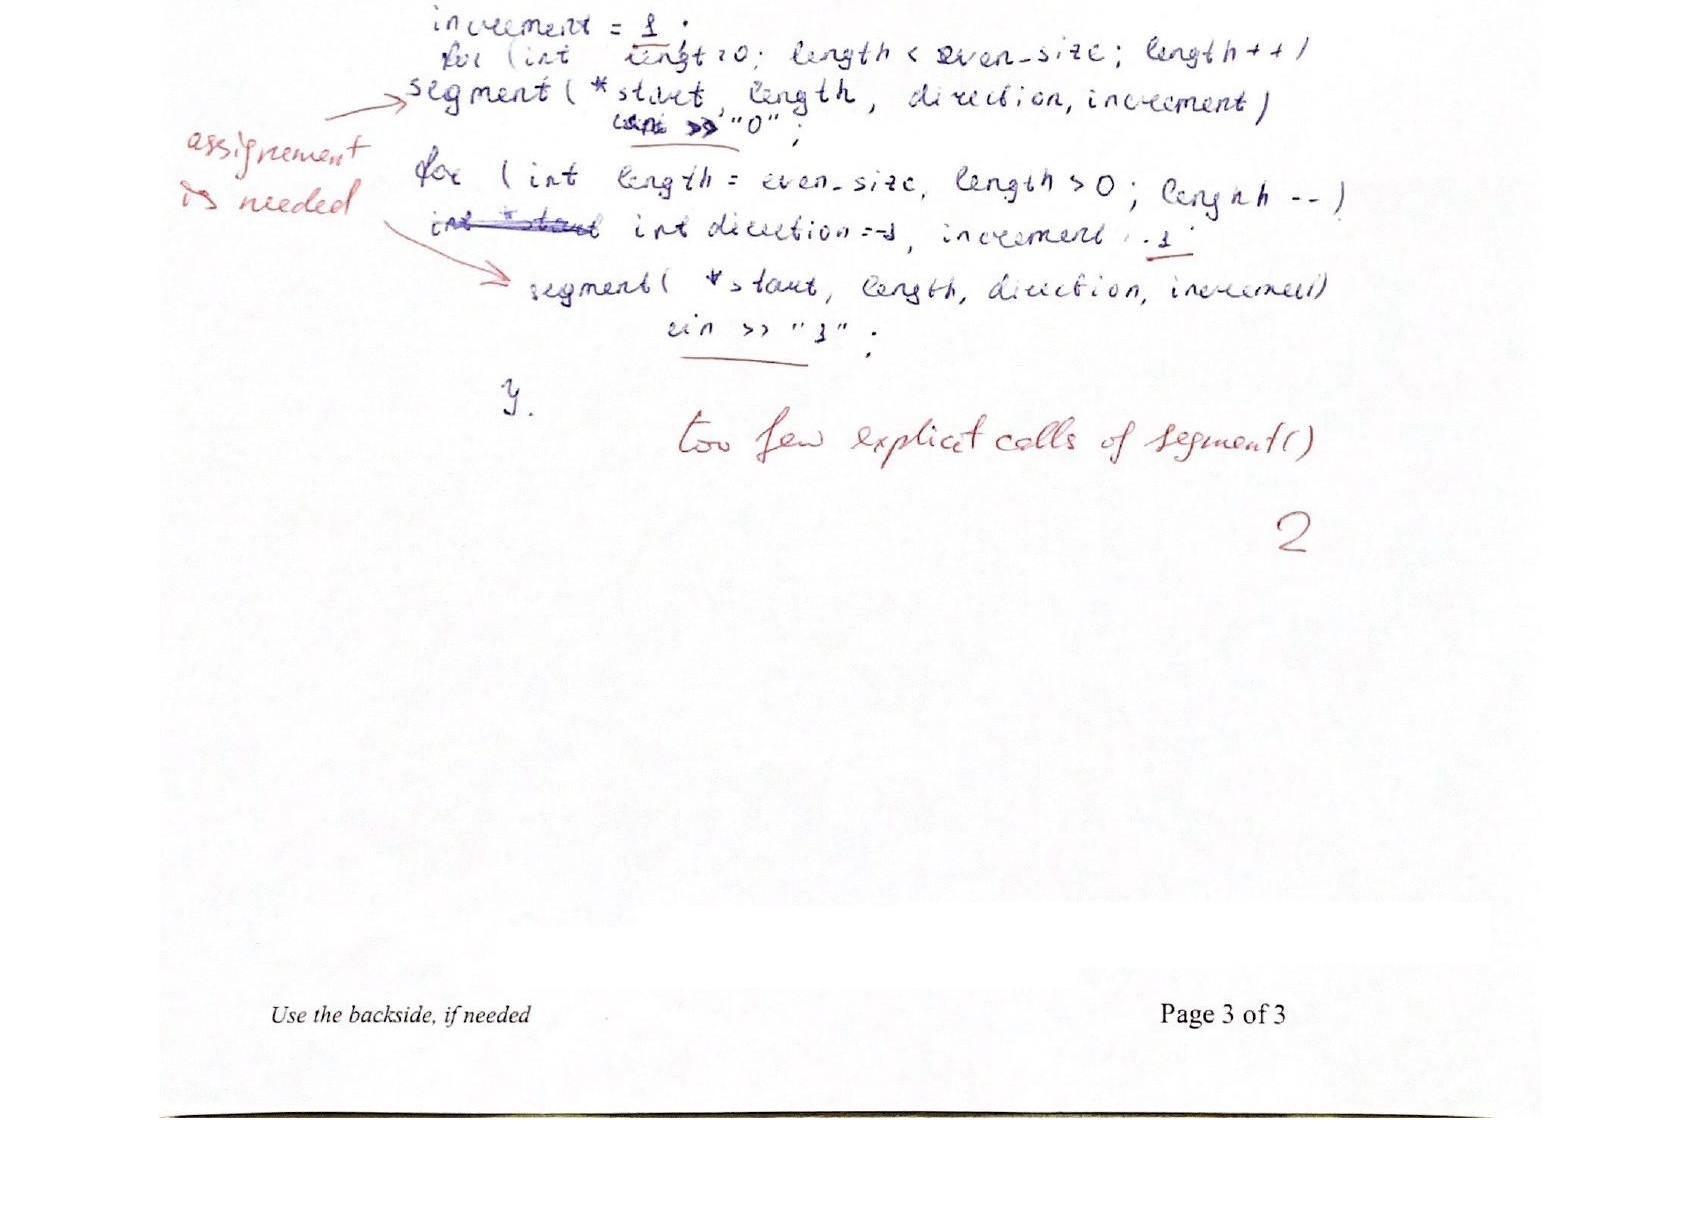 increment = 1;
for (int lengt = 0; length < even_size; length++)
segment(*start, length, direction, increment)
>> "0";
assignement
is needed
for (int length = even_size, length > 0; lenghh --)
int *start int direction = -1, increment 1;
segment( *start, length, direction, increment)
cin >> "1";
}.
too few explicit calls of segment()
2
Use the backside, if needed
Page 3 of 3